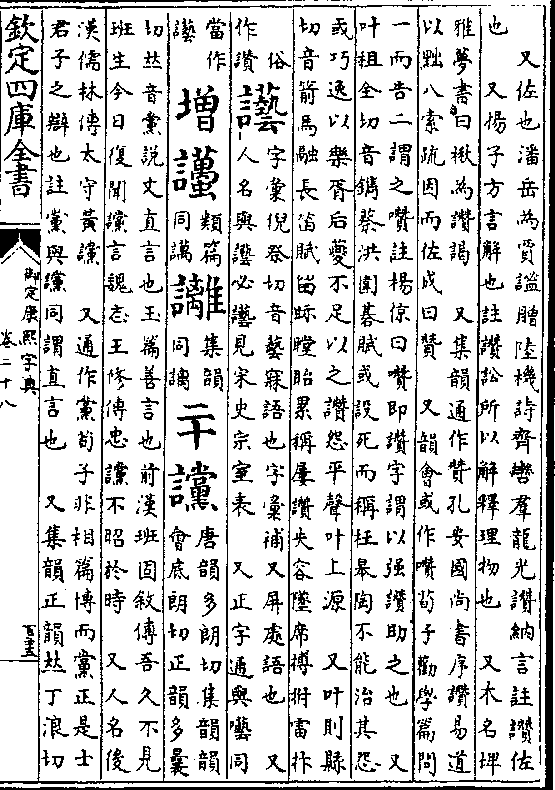 又佐也潘岳為賈謐贈陸機詩齊轡羣龍光讚納言註讚佐
也　又揚子方言解也註讚訟所以解釋理物也　又木名埤
雅夢書曰楸為讚謁　又集韻通作贊孔安國尚書序讚易道
以黜八索疏因而佐成曰贊　又韻會或作囋荀子勸學篇問
一而告二謂之囋註楊倞曰囋即讚字謂以强讚助之也　又
叶租全切音鐫蔡洪圍碁賦或設死而稱枉皋陶不能治其怨
或巧逸以樂胥后夔不足以之讚怨平聲叶上源　又叶則縣
切音箭馬融長笛賦留眎瞠眙累稱屢讚失容墜席搏拊雷抃
俗作讚
讛字彙倪祭切音藝寐語也字彙補又屏處語也　又
人名與讛必讛見宋史宗室表　又正字通與囈同
當作讛
增讉類篇同譪讎集韻同讁二十讜唐韻多朗切集韻韻會底朗切正韻多曩
切𠀤音黨説文直言也玉篇善言也前漢班固敘傳吾久不見
班生今日復聞讜言魏志王修傳忠讜不昭於時　又人名後
漢儒林傳太守黃讜　又通作黨荀子非相篇博而黨正是士
君子之辯也註黨與讜同謂直言也　又集韻正韻𠀤丁浪切
欽定四庫全書
御定康熙字典
卷二十八